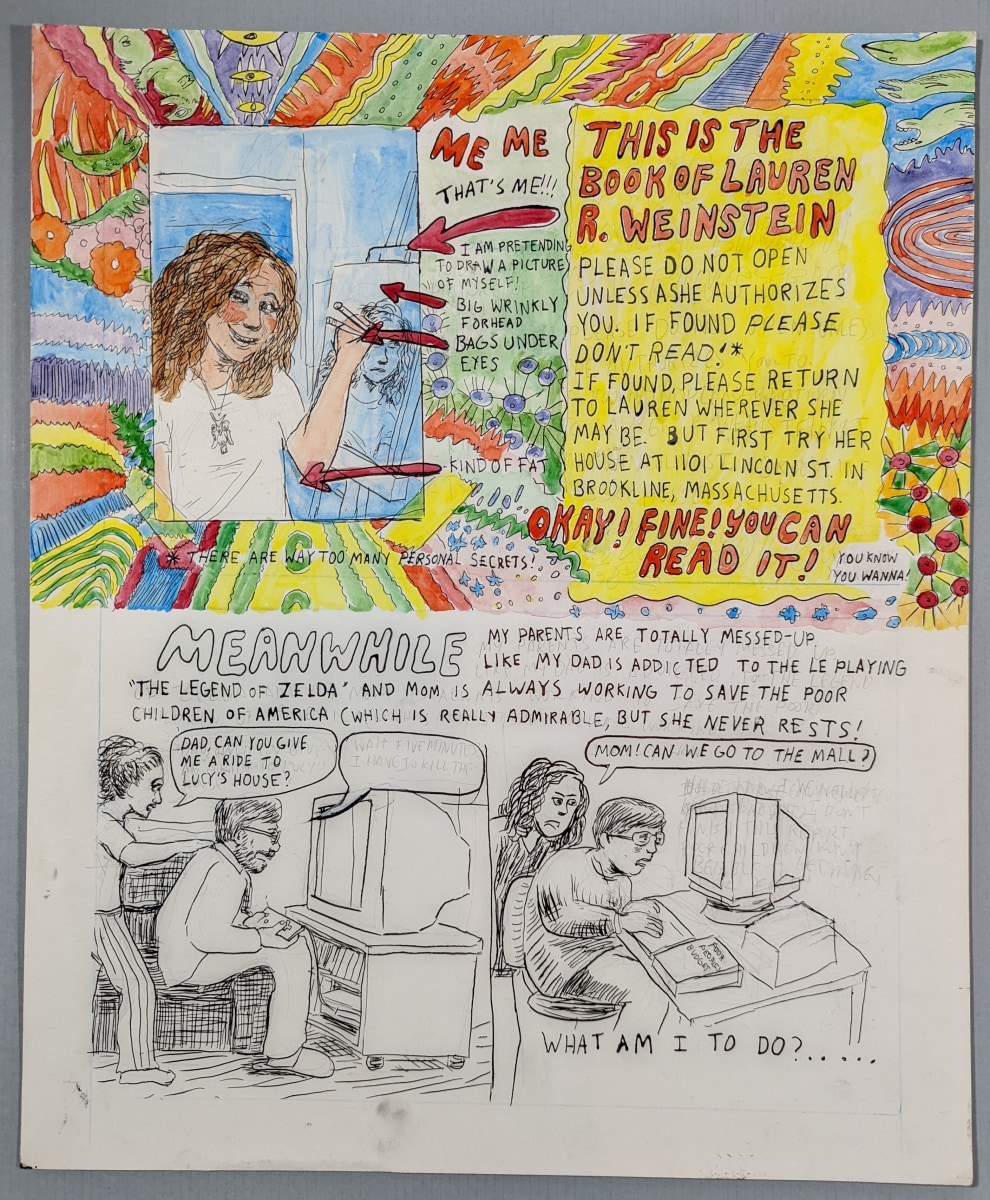 ME ME
THAT'S ME!!!
I AM PRETENDING
TO DRAW A PICTURE
OF MYSELF!
BIG WRINKLY
FORHEAD
BAGS UNDER
EYES
KIND OF FAT
THIS IS THE
BOOK OF LAUREN
R. WEINSTEIN
PLEASE DO NOT OPEN
UNLESS ASHE AUTHORIZES
YOU. IF FOUND PLEASE
DON'T READ!*
IF FOUND, PLEASE RETURN
TO LAUREN WHEREVER SHE
MAY BE. BUT FIRST TRY HER
HOUSE AT 1101 LINCOLN ST. IN
BROOKLINE, MASSACHUSETTS.
OKAY! FINE! YOU CAN
READ IT!
YOU KNOW
YOU WANNA!
* THERE ARE WAY TOO MANY PERSONAL SECRETS!
MEANWHILE
MY PARENTS ARE TOTALLY MESSED-UP
LIKE MY DAD IS ADDICTED TO THE LE PLAYING
"THE LEGEND OF ZELDA" AND MOM IS ALWAYS WORKING TO SAVE THE POOR
CHILDREN OF AMERICA (WHICH IS REALLY ADMIRABLE, BUT SHE NEVER RESTS!
DAD, CAN YOU GIVE
ME A RIDE TO
LUCY'S HOUSE?
WAIT FIVE MINUTES
I HAVE TO KILL THE
MOM! CAN WE GO TO THE MALL?
POOR
PEOPLE
BUDGET
WHAT AM I TO DO?......